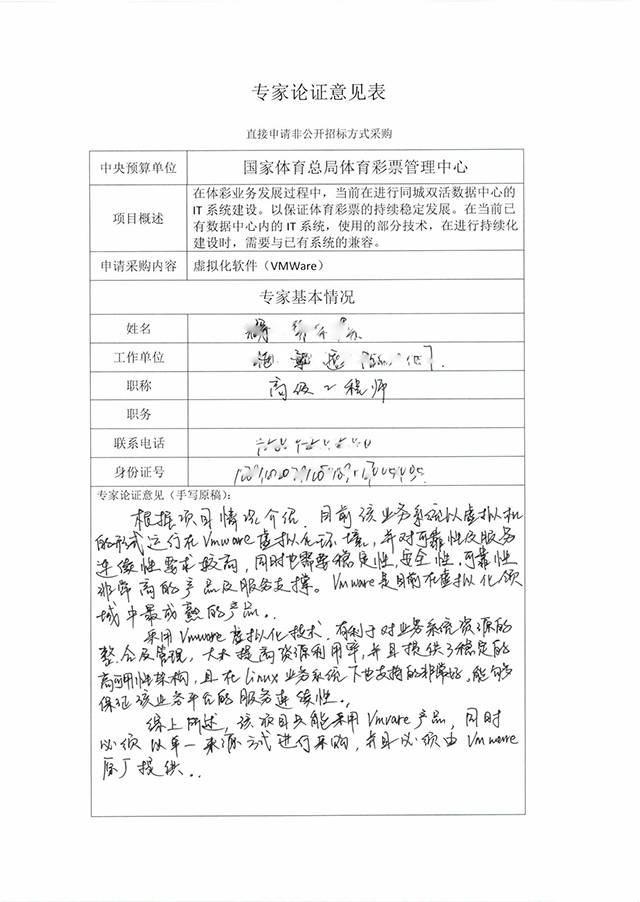 专家论证意见表
直接申请非公开招标方式采购
中央预算单位 国家体育总局体育彩票管理中心
项目概述 在体彩业务发展过程中，当前在进行同城双活数据中心的
IT 系统建设。以保证体育彩票的持续稳定发展。在当前已
有数据中心内的 IT 系统，使用的部分技术，在进行持续化
建设时，需要与已有系统的兼容。
申请采购内容 虚拟化软件（VMWare）
专家基本情况
姓名
工作单位
职称 高级工程师
职务
联系电话
身份证号
专家论证意见（手写原稿）：
根据项目情况介绍，目前该业务系统以虚拟机
的形式运行在Vmware虚拟化环境，并对可靠性及服务
连续性要求较高，同时也需要稳定性、安全性、可靠性
非常高的产品及服务支撑。Vmware是目前在虚拟化领
域中最成熟的产品。
采用Vmware虚拟化技术，有利于对业务系统资源的
整合及管理，大大提高资源利用率，并且提供了稳定的
高可用性架构，且在Linux业务系统下也支持的非常好，能够
保证该业务平台的服务连续性。
综上所述，该项目只能采用Vmware产品，同时
必须以单一来源方式进行采购，并且必须由Vmware
原厂提供。